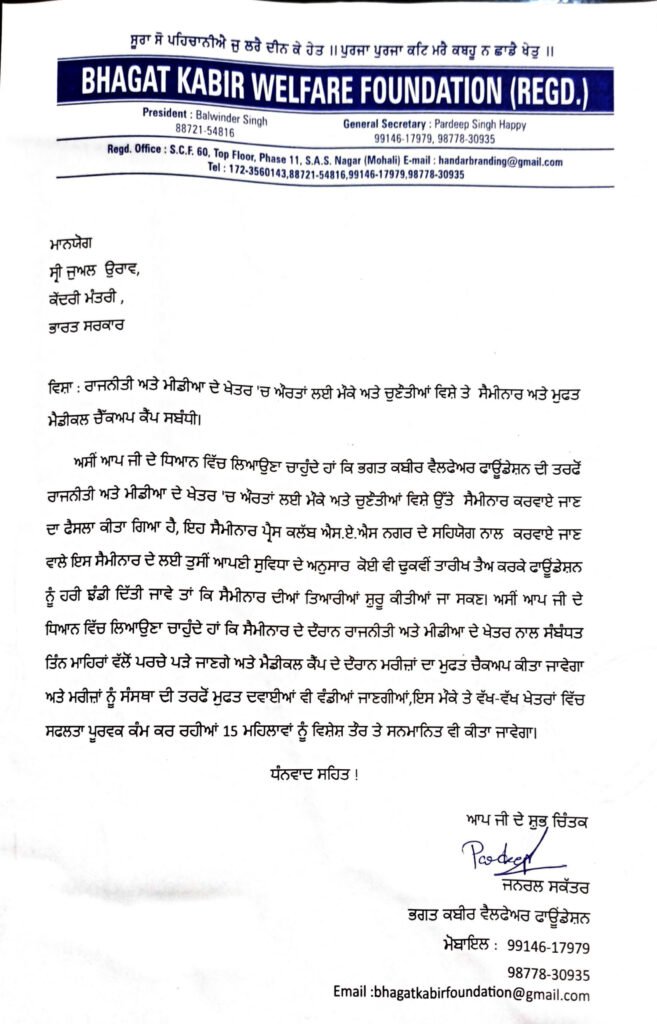 ਸੂਰਾ ਸੋ ਪਹਿਚਾਨੀਐ ਜੁ ਲਰੈ ਦੀਨ ਕੇ ਹੇਤ ॥ ਪੁਰਜਾ ਪੁਰਜਾ ਕਟਿ ਮਰੈ ਕਬਹੂ ਨ ਛਾਡੈ ਖੇਤੁ ॥
BHAGAT KABIR WELFARE FOUNDATION (REGD.)
President : Balwinder Singh
88721-54816
General Secretary : Pardeep Singh Happy
99146-17979, 98778-30935
Regd. Office : S.C.F. 60, Top Floor, Phase 11, S.A.S. Nagar (Mohali) E-mail : handarbranding@gmail.com
Tel : 172-3560143,88721-54816,99146-17979,98778-30935
ਮਾਨਯੋਗ
ਸ੍ਰੀ ਜੁਅਲ ਉਰਾਵ,
ਕੇਂਦਰੀ ਮੰਤਰੀ ,
ਭਾਰਤ ਸਰਕਾਰ
ਵਿਸ਼ਾ : ਰਾਜਨੀਤੀ ਅਤੇ ਮੀਡੀਆ ਦੇ ਖੇਤਰ 'ਚ ਔਰਤਾਂ ਲਈ ਮੌਕੇ ਅਤੇ ਚੁਣੌਤੀਆਂ ਵਿਸ਼ੇ ਤੇ ਸੈਮੀਨਾਰ ਅਤੇ ਮੁਫਤ
ਮੈਡੀਕਲ ਚੈੱਕਅਪ ਕੈਂਪ ਸਬੰਧੀ।
ਅਸੀਂ ਆਪ ਜੀ ਦੇ ਧਿਆਨ ਵਿੱਚ ਲਿਆਉਣਾ ਚਾਹੁੰਦੇ ਹਾਂ ਕਿ ਭਗਤ ਕਬੀਰ ਵੈਲਫੇਅਰ ਫਾਊਂਡੇਸ਼ਨ ਦੀ ਤਰਫੋਂ
ਰਾਜਨੀਤੀ ਅਤੇ ਮੀਡੀਆ ਦੇ ਖੇਤਰ 'ਚ ਔਰਤਾਂ ਲਈ ਮੌਕੇ ਅਤੇ ਚੁਣੌਤੀਆਂ ਵਿਸ਼ੇ ਉੱਤੇ ਸੈਮੀਨਾਰ ਕਰਵਾਏ ਜਾਣ
ਦਾ ਫੈਸਲਾ ਕੀਤਾ ਗਿਆ ਹੈ, ਇਹ ਸੈਮੀਨਾਰ ਪ੍ਰੈਸ ਕਲੱਬ ਐਸ.ਏ.ਐਸ ਨਗਰ ਦੇ ਸਹਿਯੋਗ ਨਾਲ ਕਰਵਾਏ ਜਾਣ
ਵਾਲੇ ਇਸ ਸੈਮੀਨਾਰ ਦੇ ਲਈ ਤੁਸੀਂ ਆਪਣੀ ਸੁਵਿਧਾ ਦੇ ਅਨੁਸਾਰ ਕੋਈ ਵੀ ਢੁਕਵੀਂ ਤਾਰੀਖ ਤੈਅ ਕਰਕੇ ਫਾਊਂਡੇਸ਼ਨ
ਨੂੰ ਹਰੀ ਝੰਡੀ ਦਿੱਤੀ ਜਾਵੇ ਤਾਂ ਕਿ ਸੈਮੀਨਾਰ ਦੀਆਂ ਤਿਆਰੀਆਂ ਸ਼ੁਰੂ ਕੀਤੀਆਂ ਜਾ ਸਕਣ। ਅਸੀਂ ਆਪ ਜੀ ਦੇ
ਧਿਆਨ ਵਿੱਚ ਲਿਆਉਣਾ ਚਾਹੁੰਦੇ ਹਾਂ ਕਿ ਸੈਮੀਨਾਰ ਦੇ ਦੌਰਾਨ ਰਾਜਨੀਤੀ ਅਤੇ ਮੀਡੀਆ ਦੇ ਖੇਤਰ ਨਾਲ ਸੰਬੰਧਤ
ਤਿੰਨ ਮਾਹਿਰਾਂ ਵੱਲੋਂ ਪਰਚੇ ਪੜੇ ਜਾਣਗੇ ਅਤੇ ਮੈਡੀਕਲ ਕੈਂਪ ਦੇ ਦੌਰਾਨ ਮਰੀਜ਼ਾਂ ਦਾ ਮੁਫਤ ਚੈਕਅਪ ਕੀਤਾ ਜਾਵੇਗਾ
ਅਤੇ ਮਰੀਜ਼ਾਂ ਨੂੰ ਸੰਸਥਾ ਦੀ ਤਰਫੋਂ ਮੁਫਤ ਦਵਾਈਆਂ ਵੀ ਵੰਡੀਆਂ ਜਾਣਗੀਆਂ,ਇਸ ਮੌਕੇ ਤੇ ਵੱਖ-ਵੱਖ ਖੇਤਰਾਂ ਵਿੱਚ
ਸਫਲਤਾ ਪੂਰਵਕ ਕੰਮ ਕਰ ਰਹੀਆਂ 15 ਮਹਿਲਾਵਾਂ ਨੂੰ ਵਿਸ਼ੇਸ਼ ਤੌਰ ਤੇ ਸਨਮਾਨਿਤ ਵੀ ਕੀਤਾ ਜਾਵੇਗਾ।
ਧੰਨਵਾਦ ਸਹਿਤ !
ਆਪ ਜੀ ਦੇ ਸ਼ੁਭ ਚਿੰਤਕ
Pardeep
ਜਨਰਲ ਸਕੱਤਰ
ਭਗਤ ਕਬੀਰ ਵੈਲਫੇਅਰ ਫਾਊਂਡੇਸ਼ਨ
ਮੋਬਾਇਲ : 99146-17979
98778-30935
Email :bhagatkabirfoundation@gmail.com